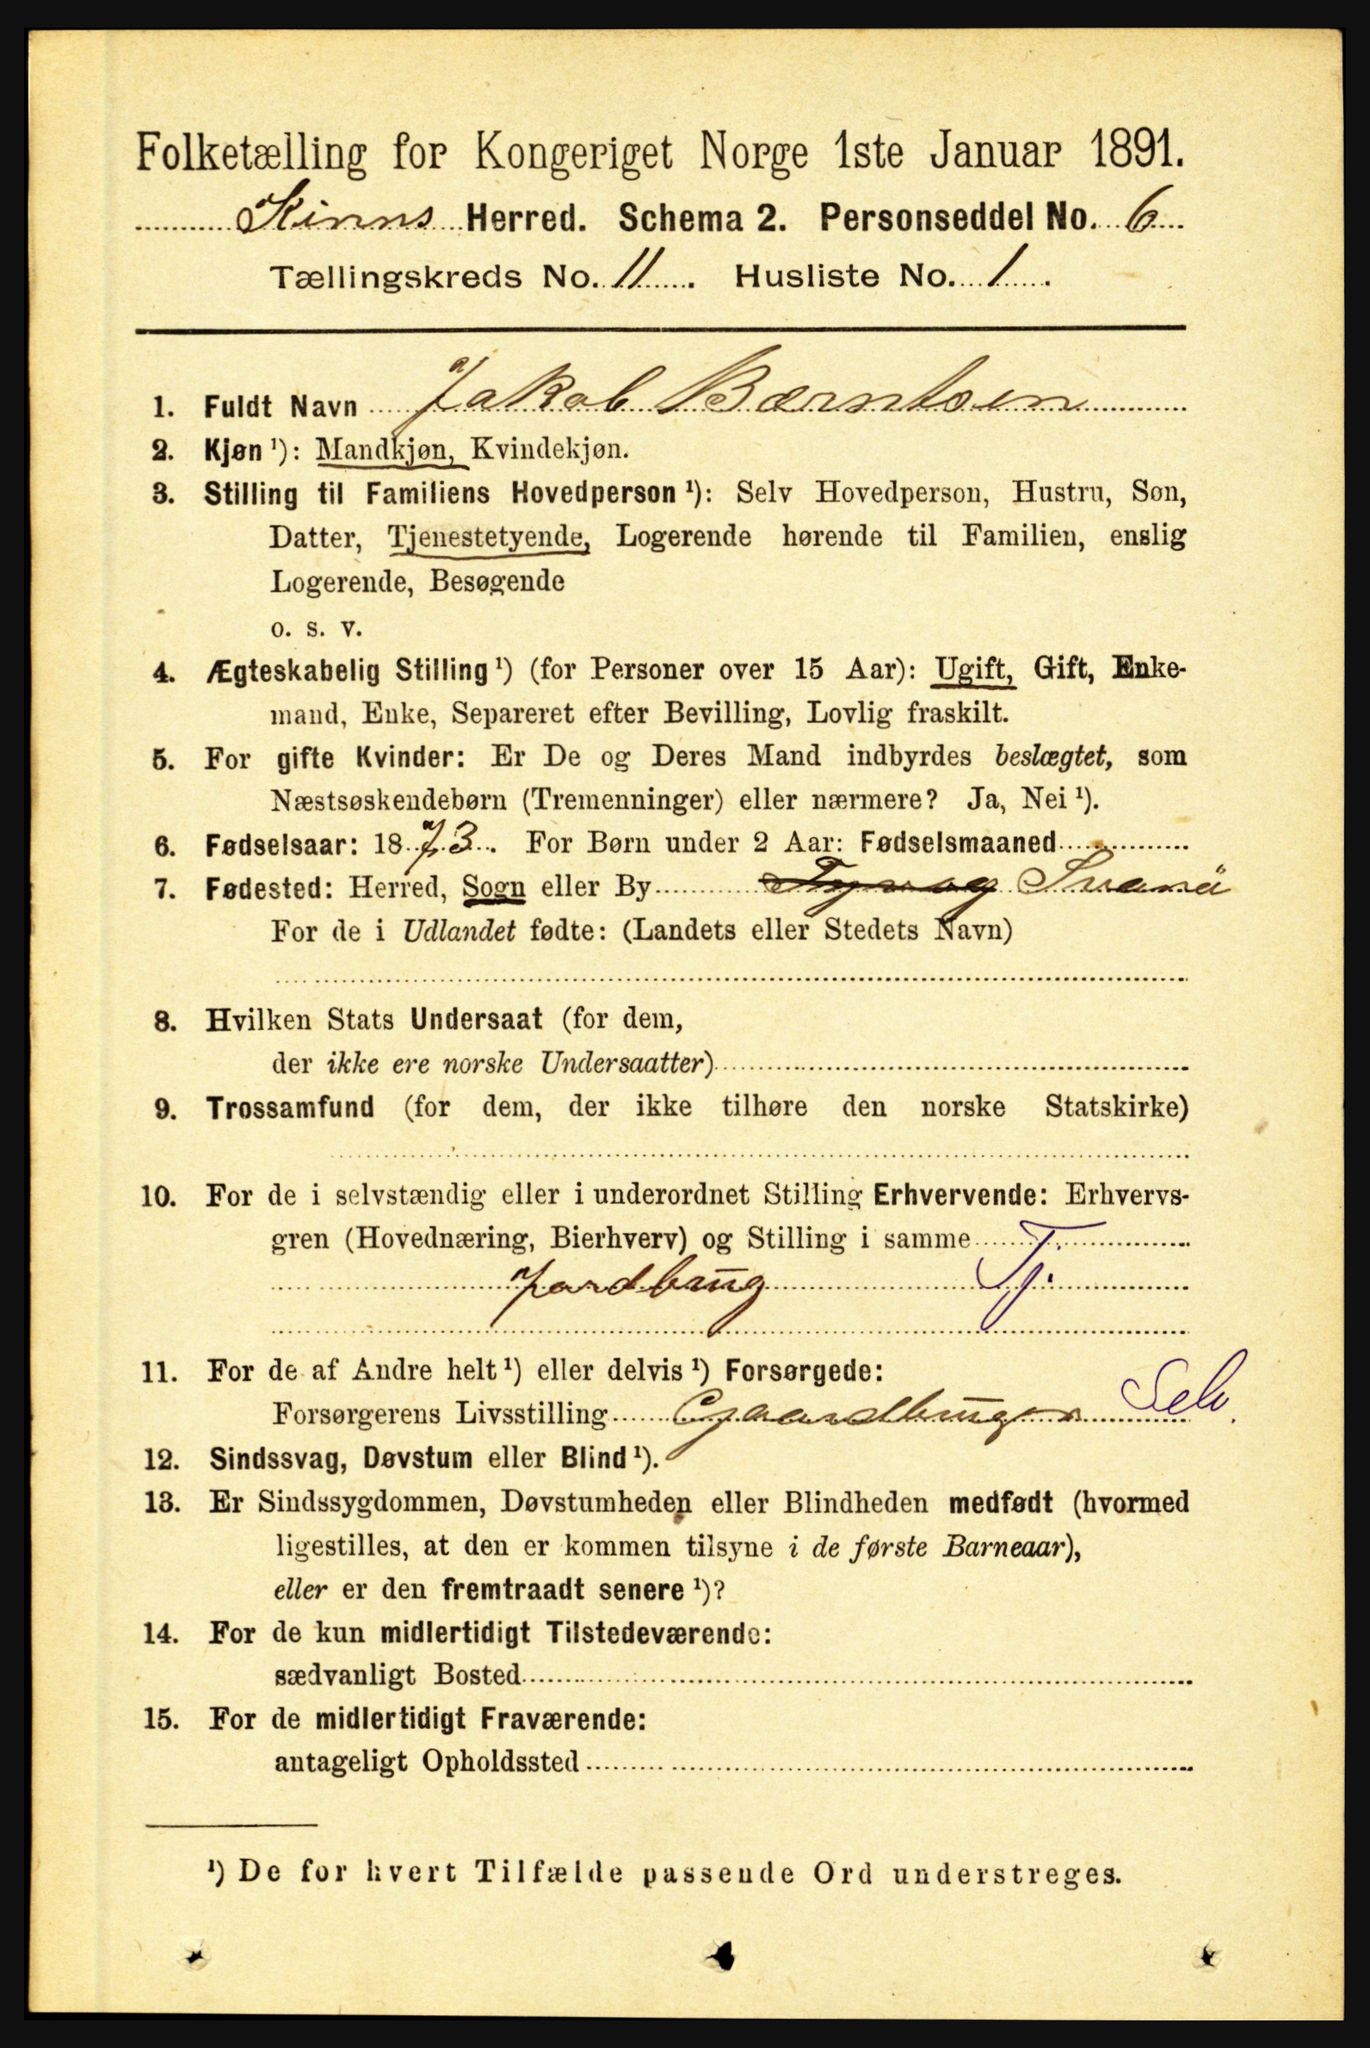 Folketælling for Kongeriget Norge 1ste Januar 1891.
Kinns Herred. Schema 2. Personseddel No. 6
Tællingskreds No. 11. Husliste No. 1.
1. Fuldt Navn Jakob Bærntsen
2. Kjøn ¹): Mandkjøn, Kvindekjøn.
3. Stilling til Familiens Hovedperson ¹): Selv Hovedperson, Hustru, Søn,
Datter, Tjenestetyende, Logerende hørende til Familien, enslig
Logerende, Besøgende
o. s. v.
4. Ægteskabelig Stilling ¹) (for Personer over 15 Aar): Ugift, Gift, Enke-
mand, Enke, Separeret efter Bevilling, Lovlig fraskilt.
5. For gifte Kvinder: Er De og Deres Mand indbyrdes beslægtet, som
Næstsøskendebørn (Tremenninger) eller nærmere? Ja, Nei ¹).
6. Fødselsaar: 1873. For Børn under 2 Aar: Fødselsmaaned
7. Fødested: Herred, Sogn eller By Svanö
For de i Udlandet fødte: (Landets eller Stedets Navn)
8. Hvilken Stats Undersaat (for dem,
der ikke ere norske Undersaatter)
9. Trossamfund (for dem, der ikke tilhøre den norske Statskirke)
10. For de i selvstændig eller i underordnet Stilling Erhvervende: Erhvervs-
gren (Hovednæring, Bierhverv) og Stilling i samme
Jordbrug Tj.
11. For de af Andre helt ¹) eller delvis ¹) Forsørgede:
Forsørgerens Livsstilling Gaardbruger Selv.
12. Sindssvag, Døvstum eller Blind ¹).
13. Er Sindssygdommen, Døvstumheden eller Blindheden medfødt (hvormed
ligestilles, at den er kommen tilsyne i de første Barneaar),
eller er den fremtraadt senere ¹)?
14. For de kun midlertidigt Tilstedeværende:
sædvanligt Bosted
15. For de midlertidigt Fraværende:
antageligt Opholdssted
¹) De for hvert Tilfælde passende Ord understreges.